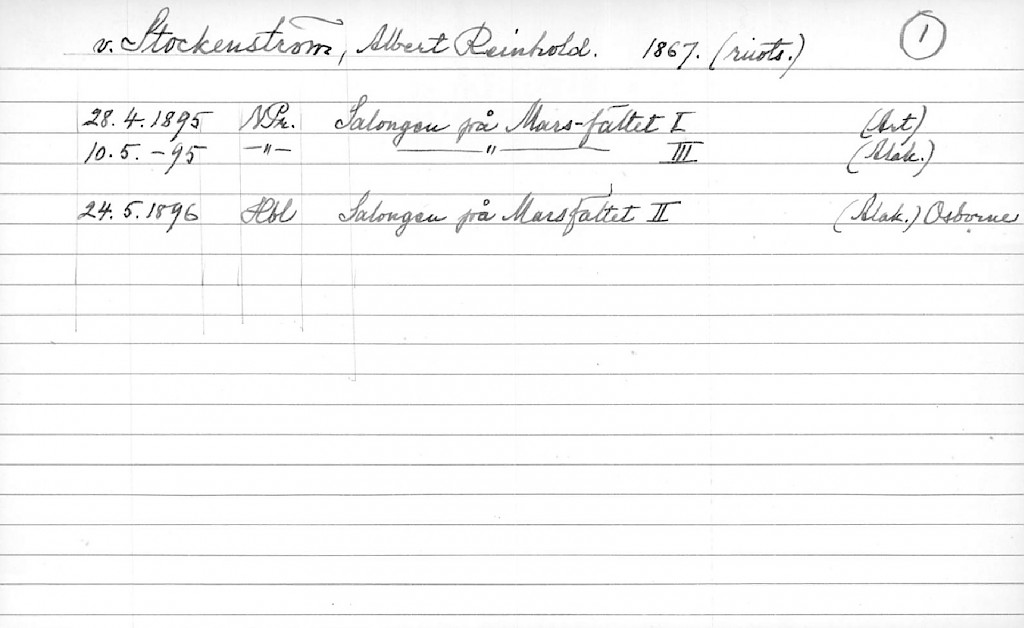 v. Stockenström, Albert Reinhold. 1867. (ruots.) 1
28.4.1895 NPr. Salongen på Mars-fältet I (Art)
10.5.-95 -"- -"- III (Alak.)
24.5.1896 Hbl Salongen på Marsfältet II (Alak.) Osborne